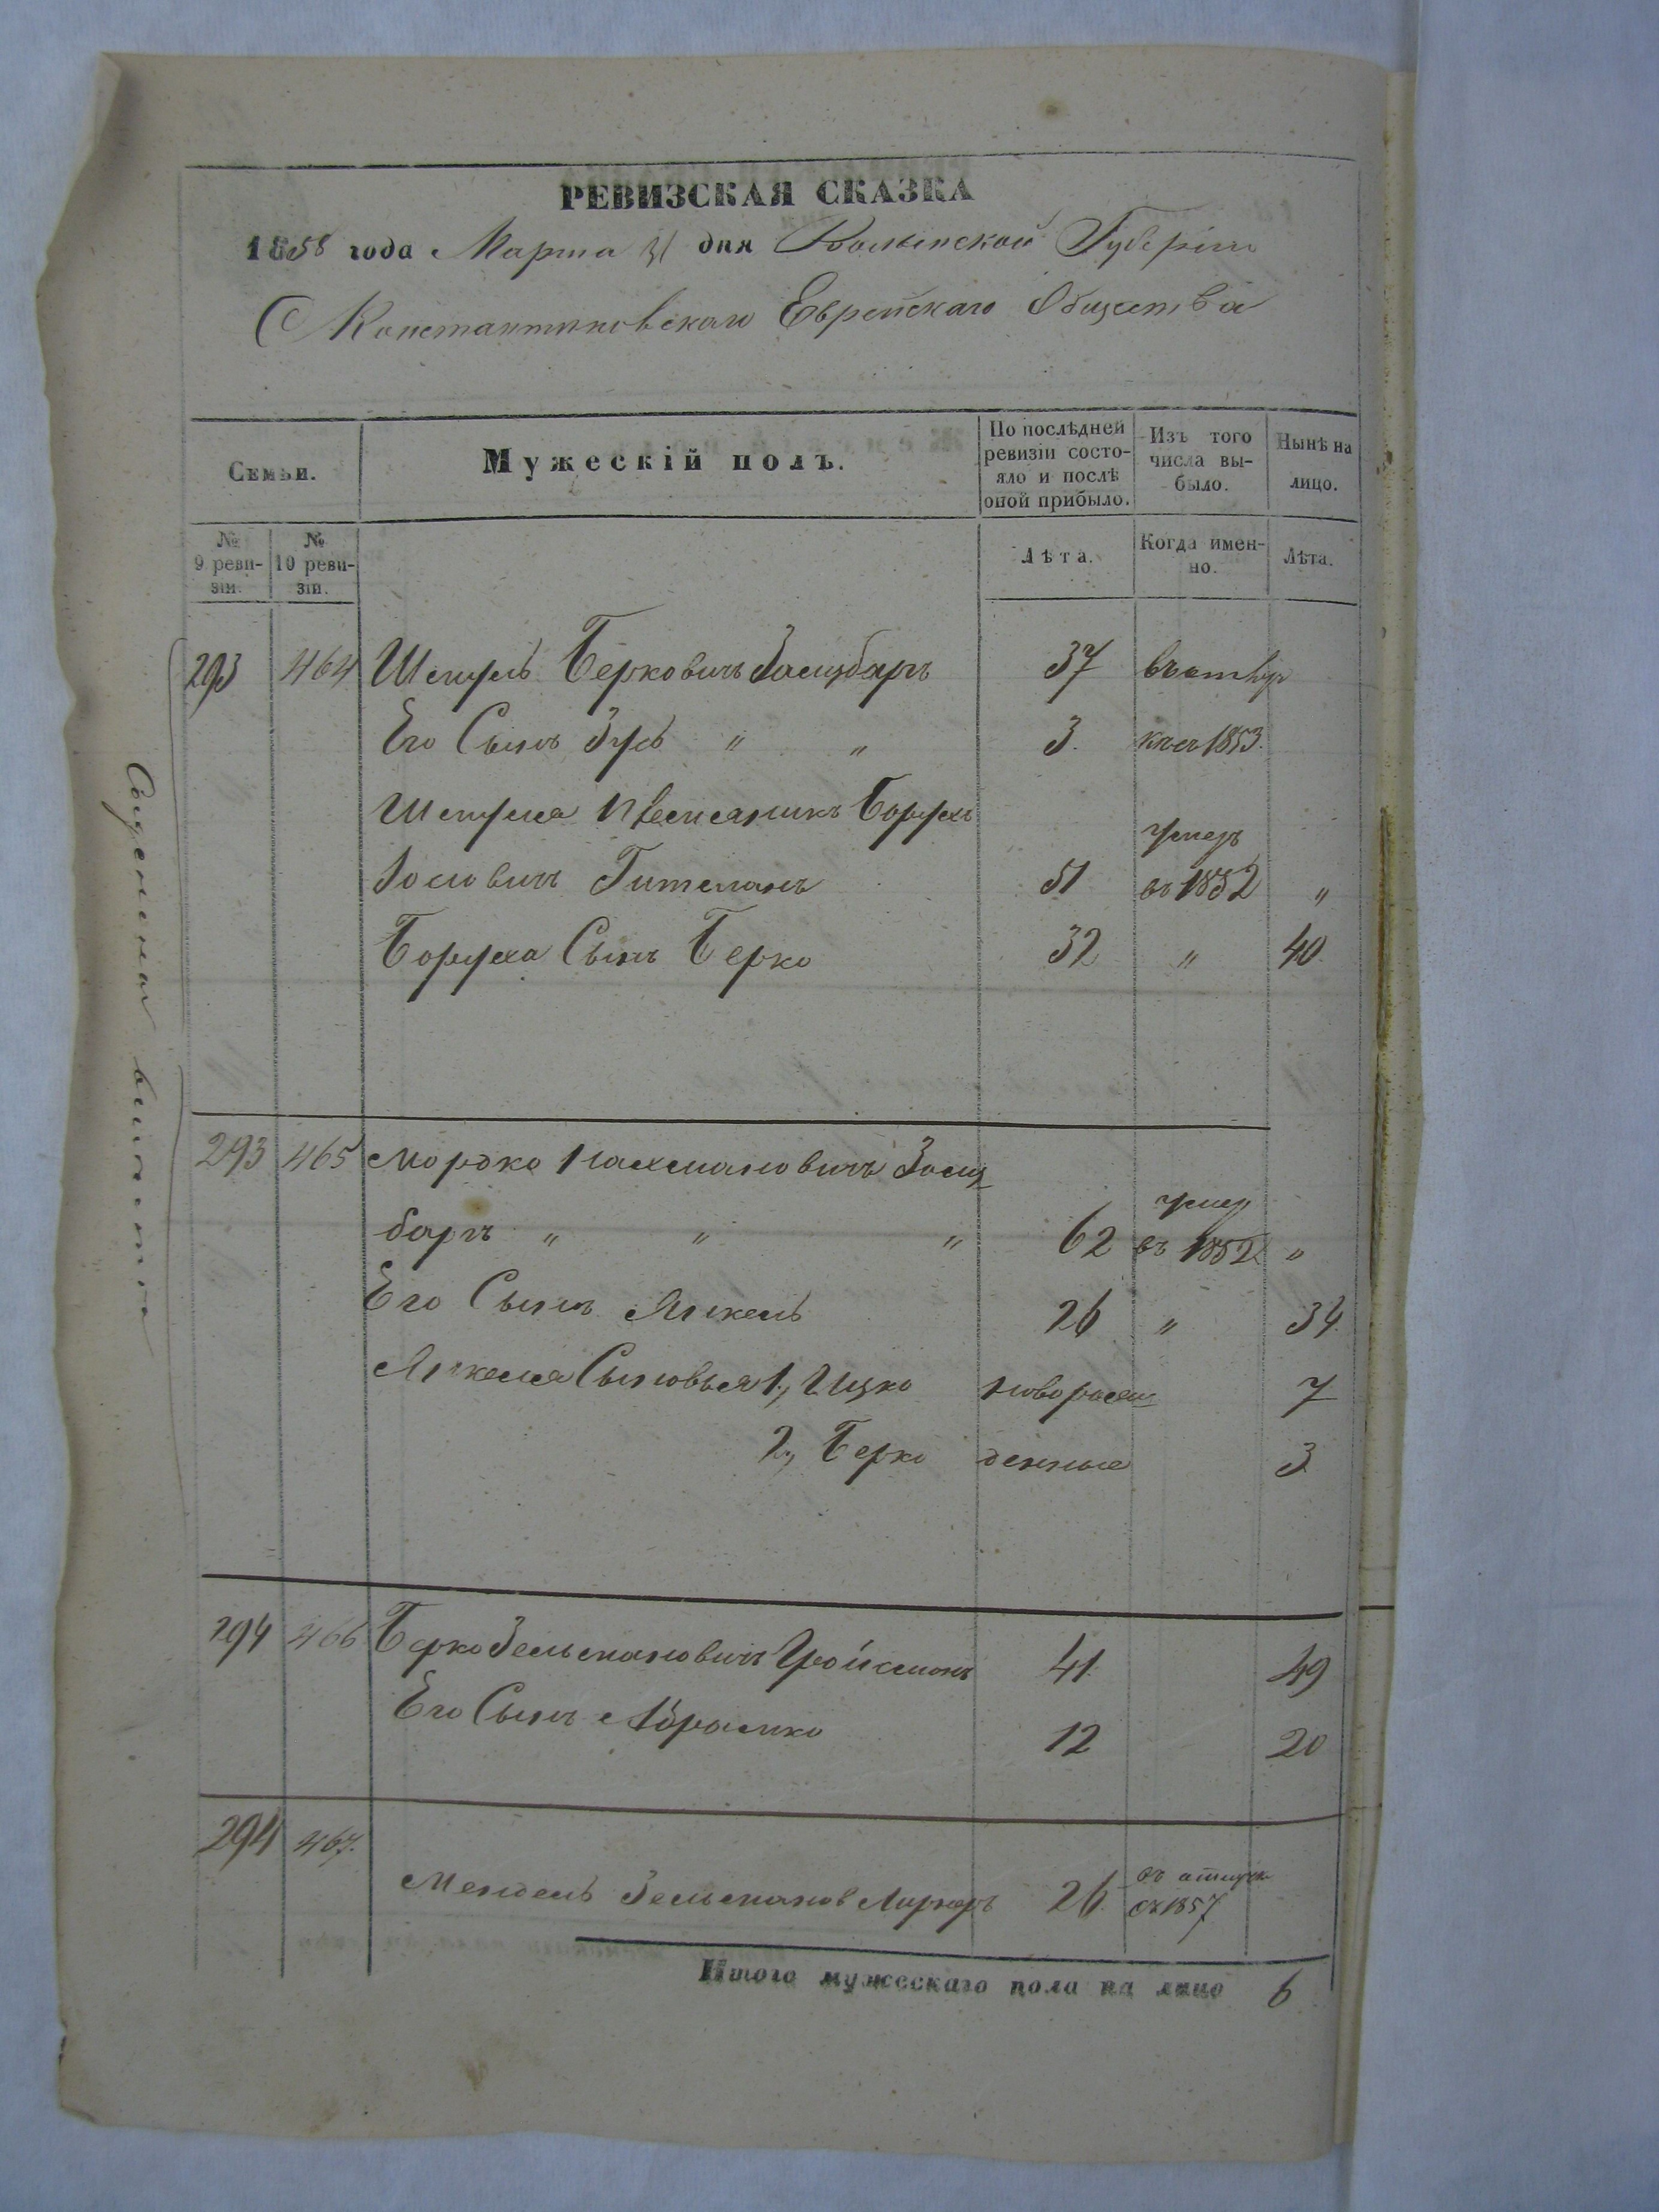 РЕВИЗСКАЯ СКАЗКА
1858 года Марта 31 дня Волынской Губерніи
С Константиновскаго Еврейскаго Общества
Семьи.
Мужескій полъ.
По послѣдней ревизіи состо-
яло и послѣ оной прибыло.
Изъ того числа вы-
было.
Нынѣ на лицо.
№ 9 реви-
зіи.
№ 10 реви-
зіи.
Лѣта.
Когда имен-
но.
Лѣта.
293 464 Шмуль Берковичъ Залцбергъ 37
Его Сынъ Зусь " " 3. 1853.
Шмуля Племяникъ Борухъ
умеръ
Іосіовичъ Гительманъ 51 въ 1852 "
Боруха Сынъ Берко 32 " 40
293 465 Мордко Нахмановичъ Залц
умеръ
баргъ " " " 62 въ 1852 "
Его Сынъ Янкель 26 " 34
Янкеля Сыновья 1, Ицко новорож 7
2, Берко денные 3
294 466 Берко Зельмановичъ Гройсманъ 41 49
Его Сынъ Абрамко 12 20
294 467.
Мендель Зельманов 26 съ 1857
Итого мужескаго пола на лицо 6